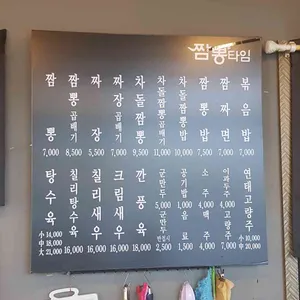 짬뽕타임
짬뽕 7,000
짬뽕곱배기 8,500
짜장 5,500
짜장곱배기 7,000
차돌짬뽕 9,500
차돌짬뽕곱배기 11,000
차돌짬뽕밥 10,000
짬뽕밥 7,500
짬짜면 7,000
볶음밥 7,000
탕수육 小14,000 中18,000 大21,000
칠리탕수육
칠리새우 16,000
크림새우 16,000
깐풍육 18,000
군만두 5,000
군만두반접시 2,500
공기밥 1,000
음료 1,500
소주 4,000
맥주 4,000
이과두주 4,000
고량주 7,000
연태고량주 小10,000 中20,000